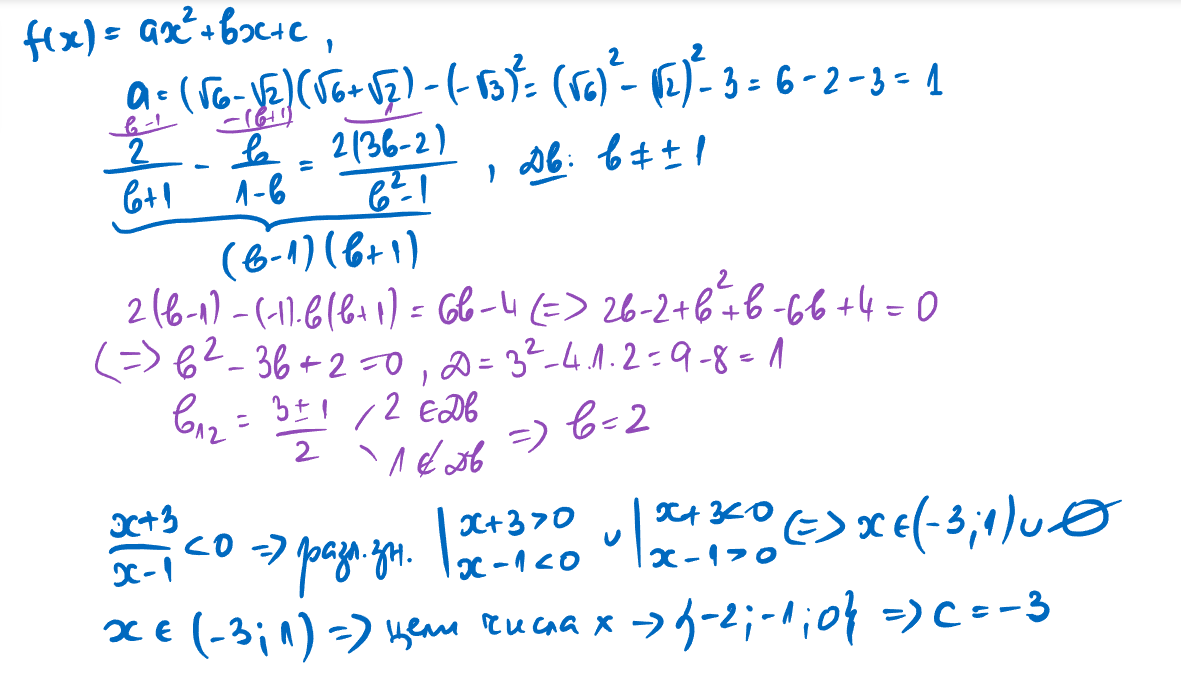 f(x) = ax² + bx + c ,
a = (√6 − √2)(√6 + √2) − (−√3)² = (√6)² − (√2)² − 3 = 6 − 2 − 3 = 1
b−1 −(b+1) 1
2/(b+1) − b/(1−b) = 2(3b−2)/(b²−1) , Дb: b ≠ ±1
(b−1)(b+1)
2(b−1) − (−1).b(b+1) = 6b − 4 <=> 2b − 2 + b² + b − 6b + 4 = 0
<=> b² − 3b + 2 = 0 , D = 3² − 4.1.2 = 9 − 8 = 1
b₁₂ = (3 ± 1)/2 / 2 ∈ Дb \ 1 ∉ Дb => b = 2
(x+3)/(x−1) < 0 => разл. зн. | x+3 > 0 x−1 < 0 ∪ | x+3 < 0 x−1 > 0 <=> x ∈ (−3; 1) ∪ ∅
x ∈ (−3; 1) => цели числа x → {−2; −1; 0} => c = −3